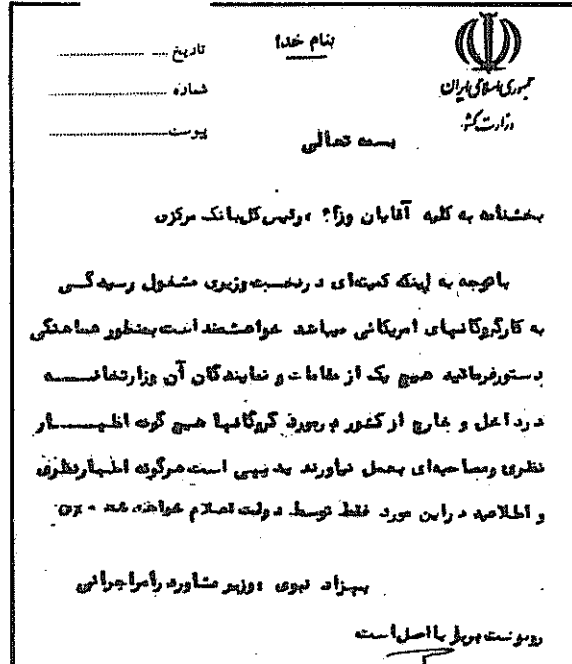 بنام خدا
تاریخ
شماره
پیوست
جمهوری اسلامی ایران
وزارت کشور
بسمه تعالی
بخشنامه به کلیه آقایان وزرا، رئیس کل بانک مرکزی
باتوجه به اینکه کمیته‌ای در نخست وزیری مشغول رسیدگی
به کار گروگانهای امریکائی میباشد خواهشمند است بمنظور هماهنگی
دستور فرمائید هیچ یک از مقامات و نمایندگان آن وزارتخانه
در داخل و خارج از کشور در مورد گروگانها هیچ گونه اظهار
نظری ومصاحبه‌ای بعمل نیاورند بدیهی است هرگونه اظهارنظری
و اطلاعیه در این مورد فقط توسط دولت اعلام خواهد شد
بهزاد نبوی وزیر مشاور در امور اجرائی
رونوشت برابر با اصل است